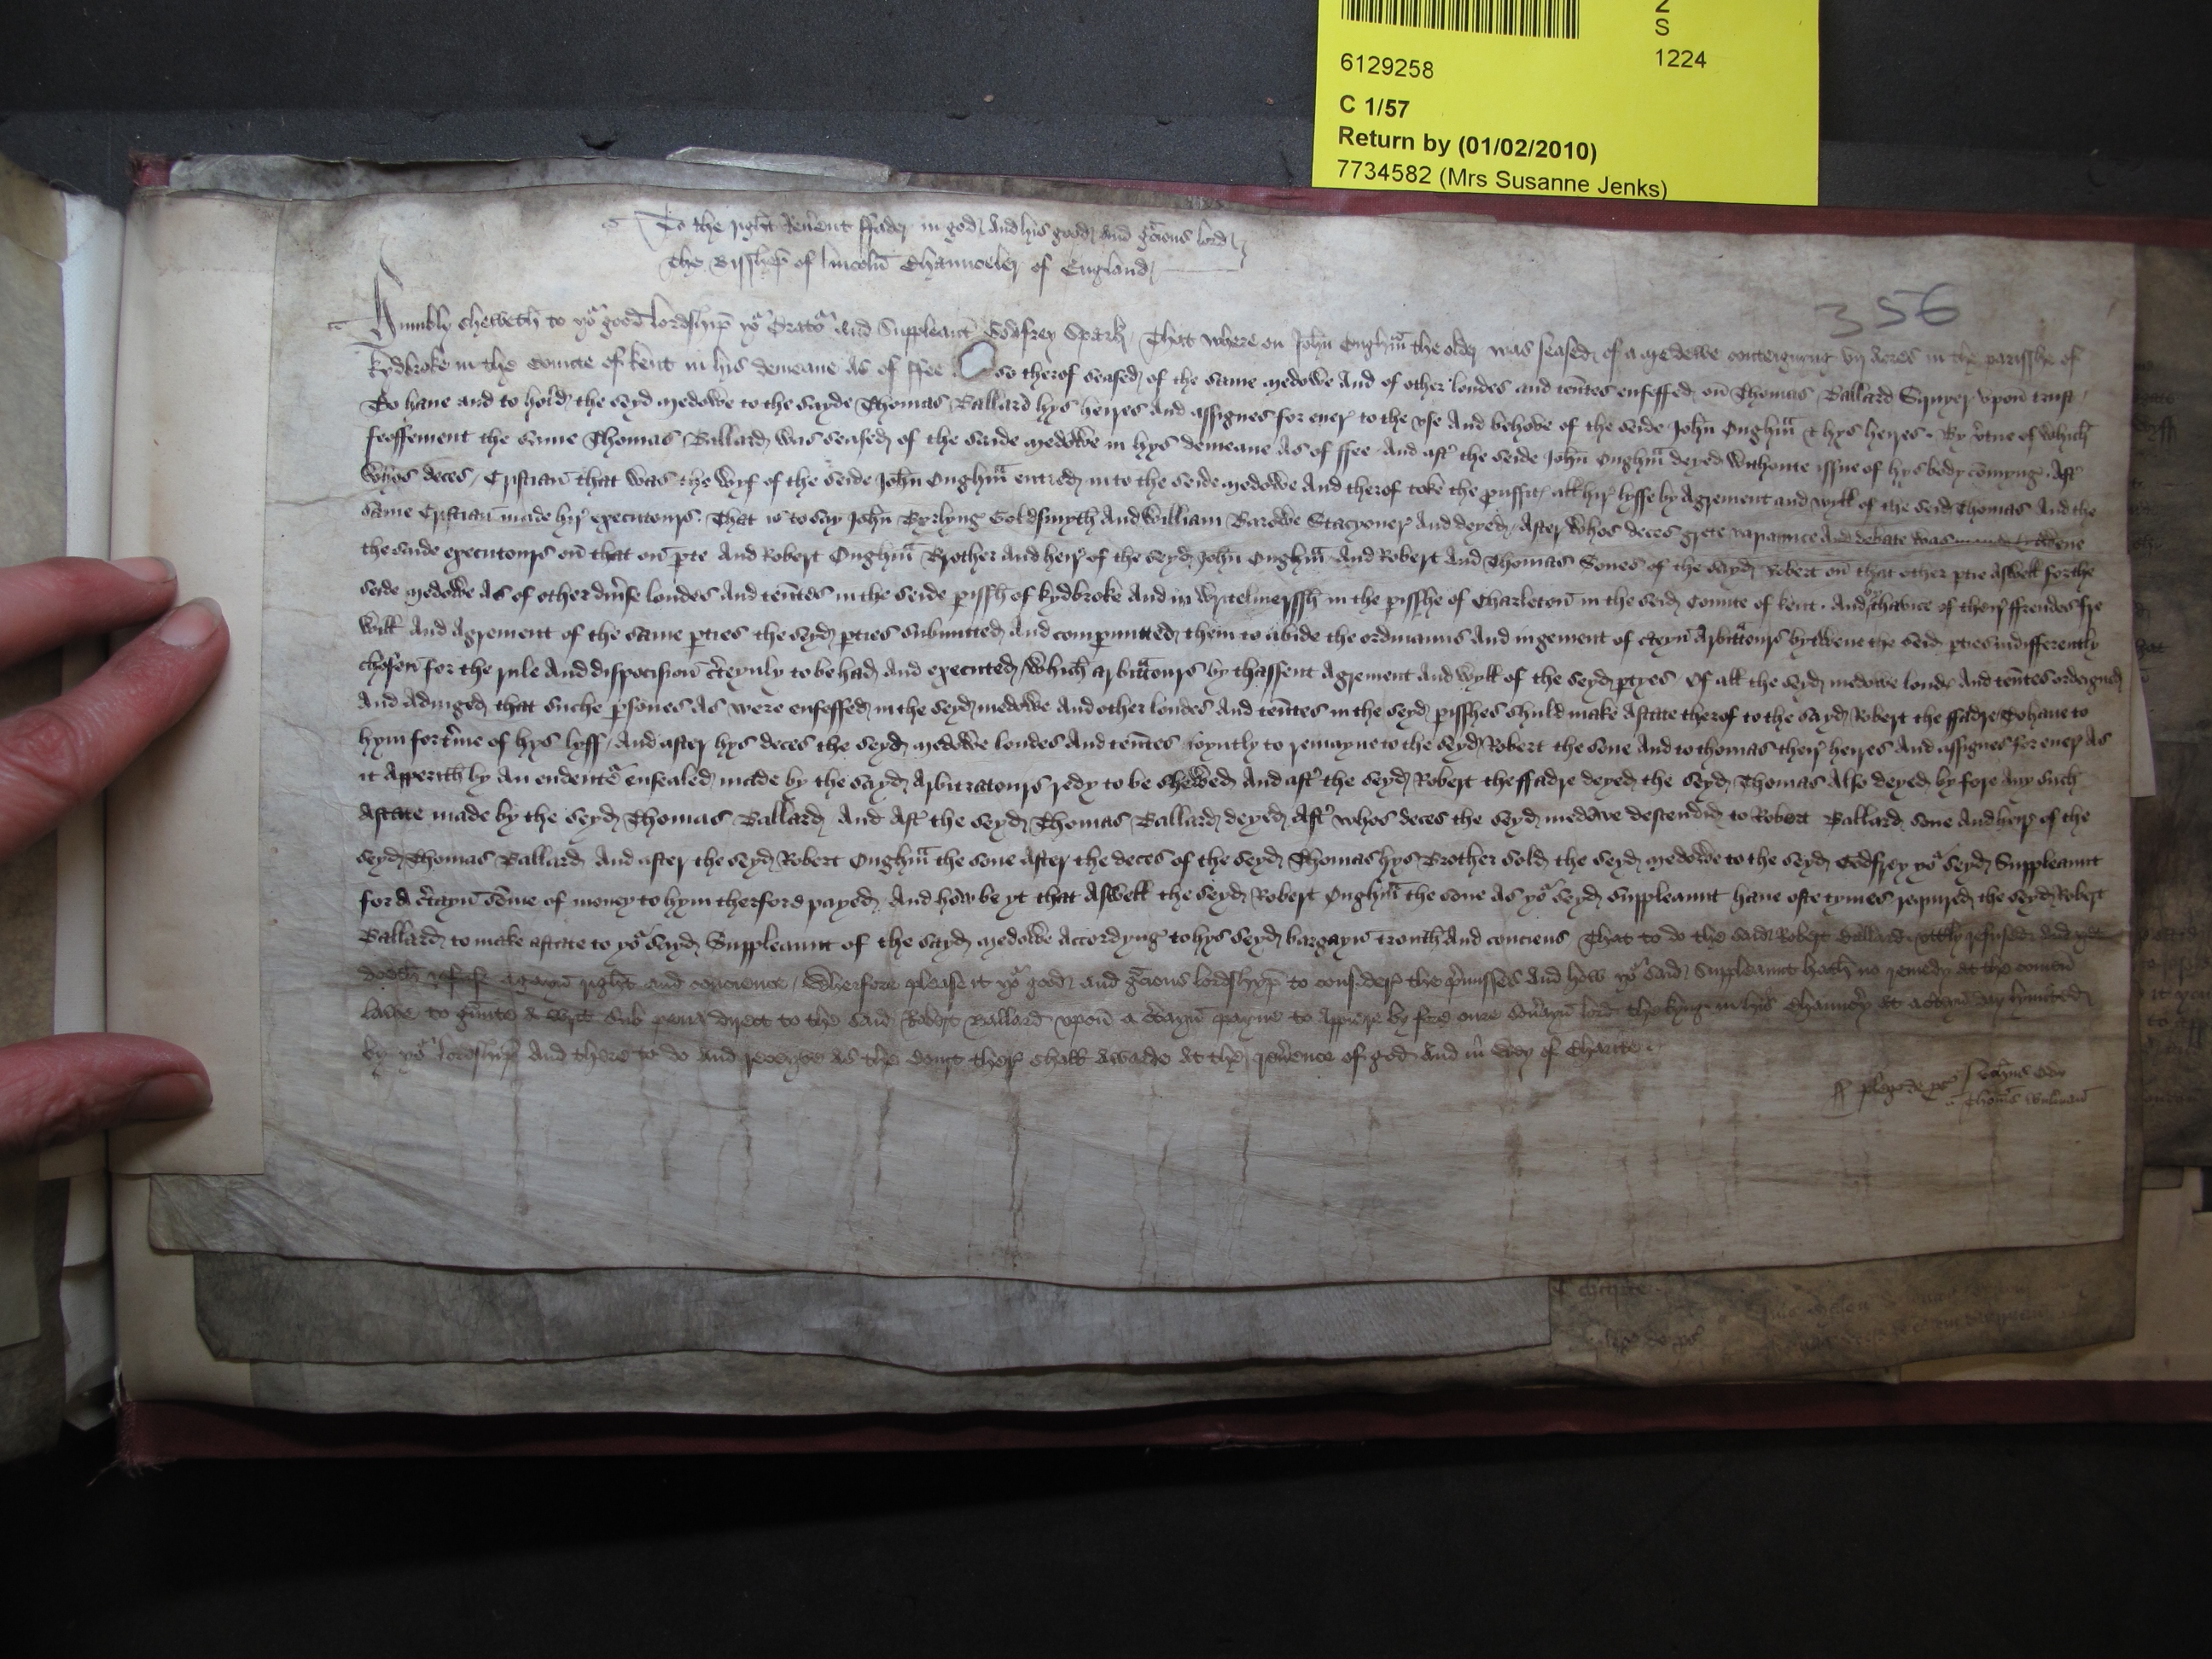 2
S
6129258 1224
C 1/57
Return by (01/02/2010)
7734582 (Mrs Susanne Jenks)
To the right reverent ffader in god and his good and gracious lord
The Bisshop of lincoln Chaunceler of England
356
Humbly sheweth to yor good lordship yor Orator and Suppleant Godfrey Spark That where on John Onghm the older was seased of a medewe conteignent vij Acres in the parisshe of
kydbroke in the Counte of kent in his demeane as of ffee so therof seased of the same medowe And of other londes and tentes enfeffed on Thomas Ballard Squyer vpon trust
To haue and to hold the seyd medowe to the sayde Thomas Ballard hys heyres And assignes for euer to the vse And behove of the seide John Onghm & hys heyres. By vtue of which
feoffement the same Thomas Ballard was seased of the seide medowe in hys demeane As of ffee And aft the seide John Onghm deyed withoute issue of hys body comyng. Aft
whos deces Cristian that was the wyf of the seide John Onghm entred in to the seide medowe And therof toke the pussit all hir lyffe by Agrement and wyll of the seid Thomas And the
same Cristian made hir executours. That is to say John Byrlyng Goldsmyth And William Barowe Stacyoner And deyed After whos deces grete varyaunce And debate was twene
the seide executours on that on pte And Robert Onghm Brother And heir of the seyd John Onghm And Robert And Thomas Sones of the sayd Robert on that other ptie Aswell for the
seide medowe As of other diuse londes And tentes in the seide pissh of kydbroke And in in the pisshe of Charleton in the seid Counte of kent. And by thavice of their ffrendes fre
will And Agrement of the same pties the seyd pties submitted And compmitted them to abide the ordinauns And iugement of cteyn Arbitrours bytwene the seid pties indifferently
chosen for the rule And disposision cteynly to be had and executed which arbitrours by thassent Agrement And wyll of the seyd ptyes Of all the seyd medowe londe And tentes ordeigned
And Adiuged that suche psones As were enfeffed in the seyd medowe And other londes And tentes in the seyd pisshes shuld make Astate therof to the sayd Robert the ffadre To haue to
hym for tme of hys lyff And after hys deces the seyd medowe londes And tentes ioyntly to remayne to the seyd Robert the sone And to thomas their heyres And assignes for euer As
it Apperith by An endente ensealed made by the sayd Arbitratours redy to be shewed And aft the seyd Robert the ffadre deyed the seyd Thomas Also deyed by fore Any such
Astate made by the seyd Thomas Ballard And Aft the seyd Thomas Ballard deyed Aft whos deces the seyd medowe descendid to Robert Ballard sone And heir of the
seyd Thomas Ballard And after the seyd Robert Onghm the sone After the deces of the seyd Thomas hys Brother sold the seyd medowe to the seyd Godfrey yor seyd Suppleaunt
for A ctayn some of money to hym therfore payed And how be yt that Aswell the seyd Robert Onghm the sone As yor seyd suppleaunt haue ofte tymes requyred the seyd Robert
Ballard to make astate to yor seyd Suppleaunt of the sayd medowe Accordyng to hys seyd bargayn trouth And conciens That to do the said Robert Ballard vttly refused And yet
dooth refuse agayn right and concience Wherfore please it yor good and gracious lordshypp to consider the pmisses And how yor said Suppleaunt hath no remedy at the comen
lawe to gunte a writ sub pena direct to the said Robert Ballard vpon a ctayn payne to Appere by fore oure souayn lord the kyng in his Chauncery at a ctayn day lymited
by yor lordship And there to do and receyve as the Court ther shall awarde at the reuence of god And in wey of Charite
plegs de ps Johnes
Thomas